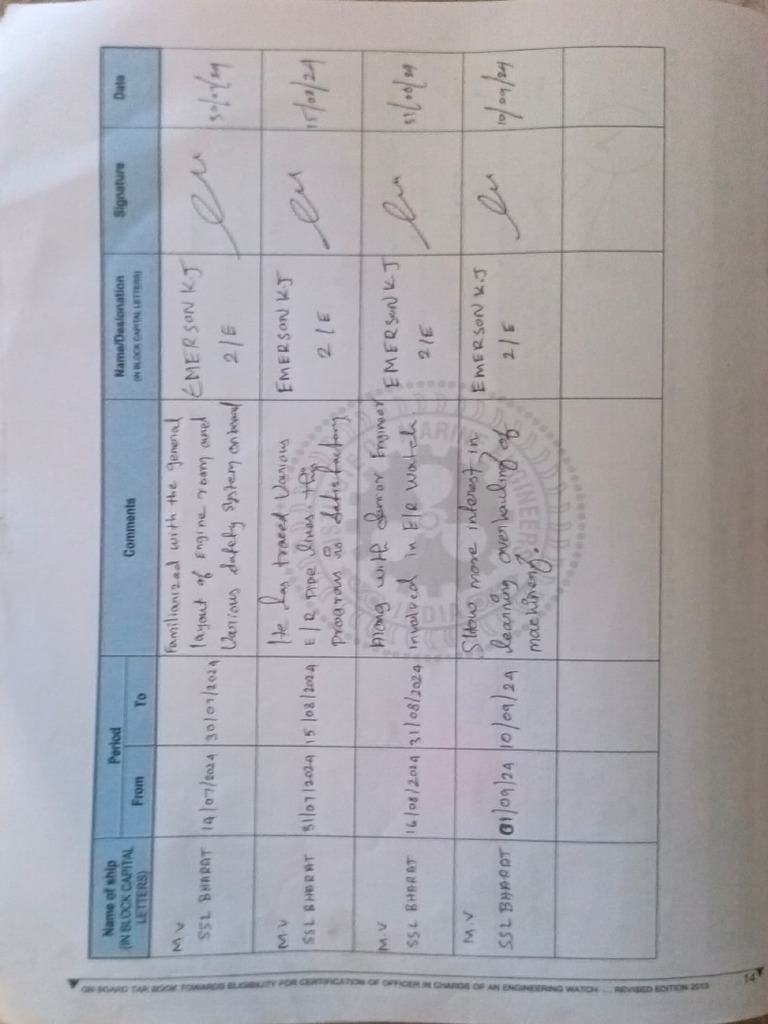 Name of ship
(IN BLOCK CAPITAL
LETTERS)
Period
From
To
Comments
Name/Designation
(IN BLOCK CAPITAL LETTERS)
Signature
Date
M.V
SSL BHARAT
14/07/2024
30/07/2024
Familiarized with the general
layout of Engine room and
Various Safety System onboard
EMERSON K.J
2/E
30/07/24
M.V
SSL BHARAT
31/07/2024
15/08/2024
He has traced Various
E/R Pipe lines. this
program is Satisfactory
EMERSON K.J
2/E
15/08/24
M.V
SSL BHARAT
16/08/2024
31/08/2024
Along with Senior Engineer
involved in E/R Watch
EMERSON K.J
2/E
31/08/24
M.V
SSL BHARAT
01/09/24
10/09/24
Show more interest in
learning overhauling of
machinery.
EMERSON K.J
2/E
10/09/24
MARINE ENGINEERS
INDIA
ON BOARD TAR BOOK TOWARDS ELIGIBILITY FOR CERTIFICATION OF OFFICER IN CHARGE OF AN ENGINEERING WATCH .... REVISED EDITION 2013
14